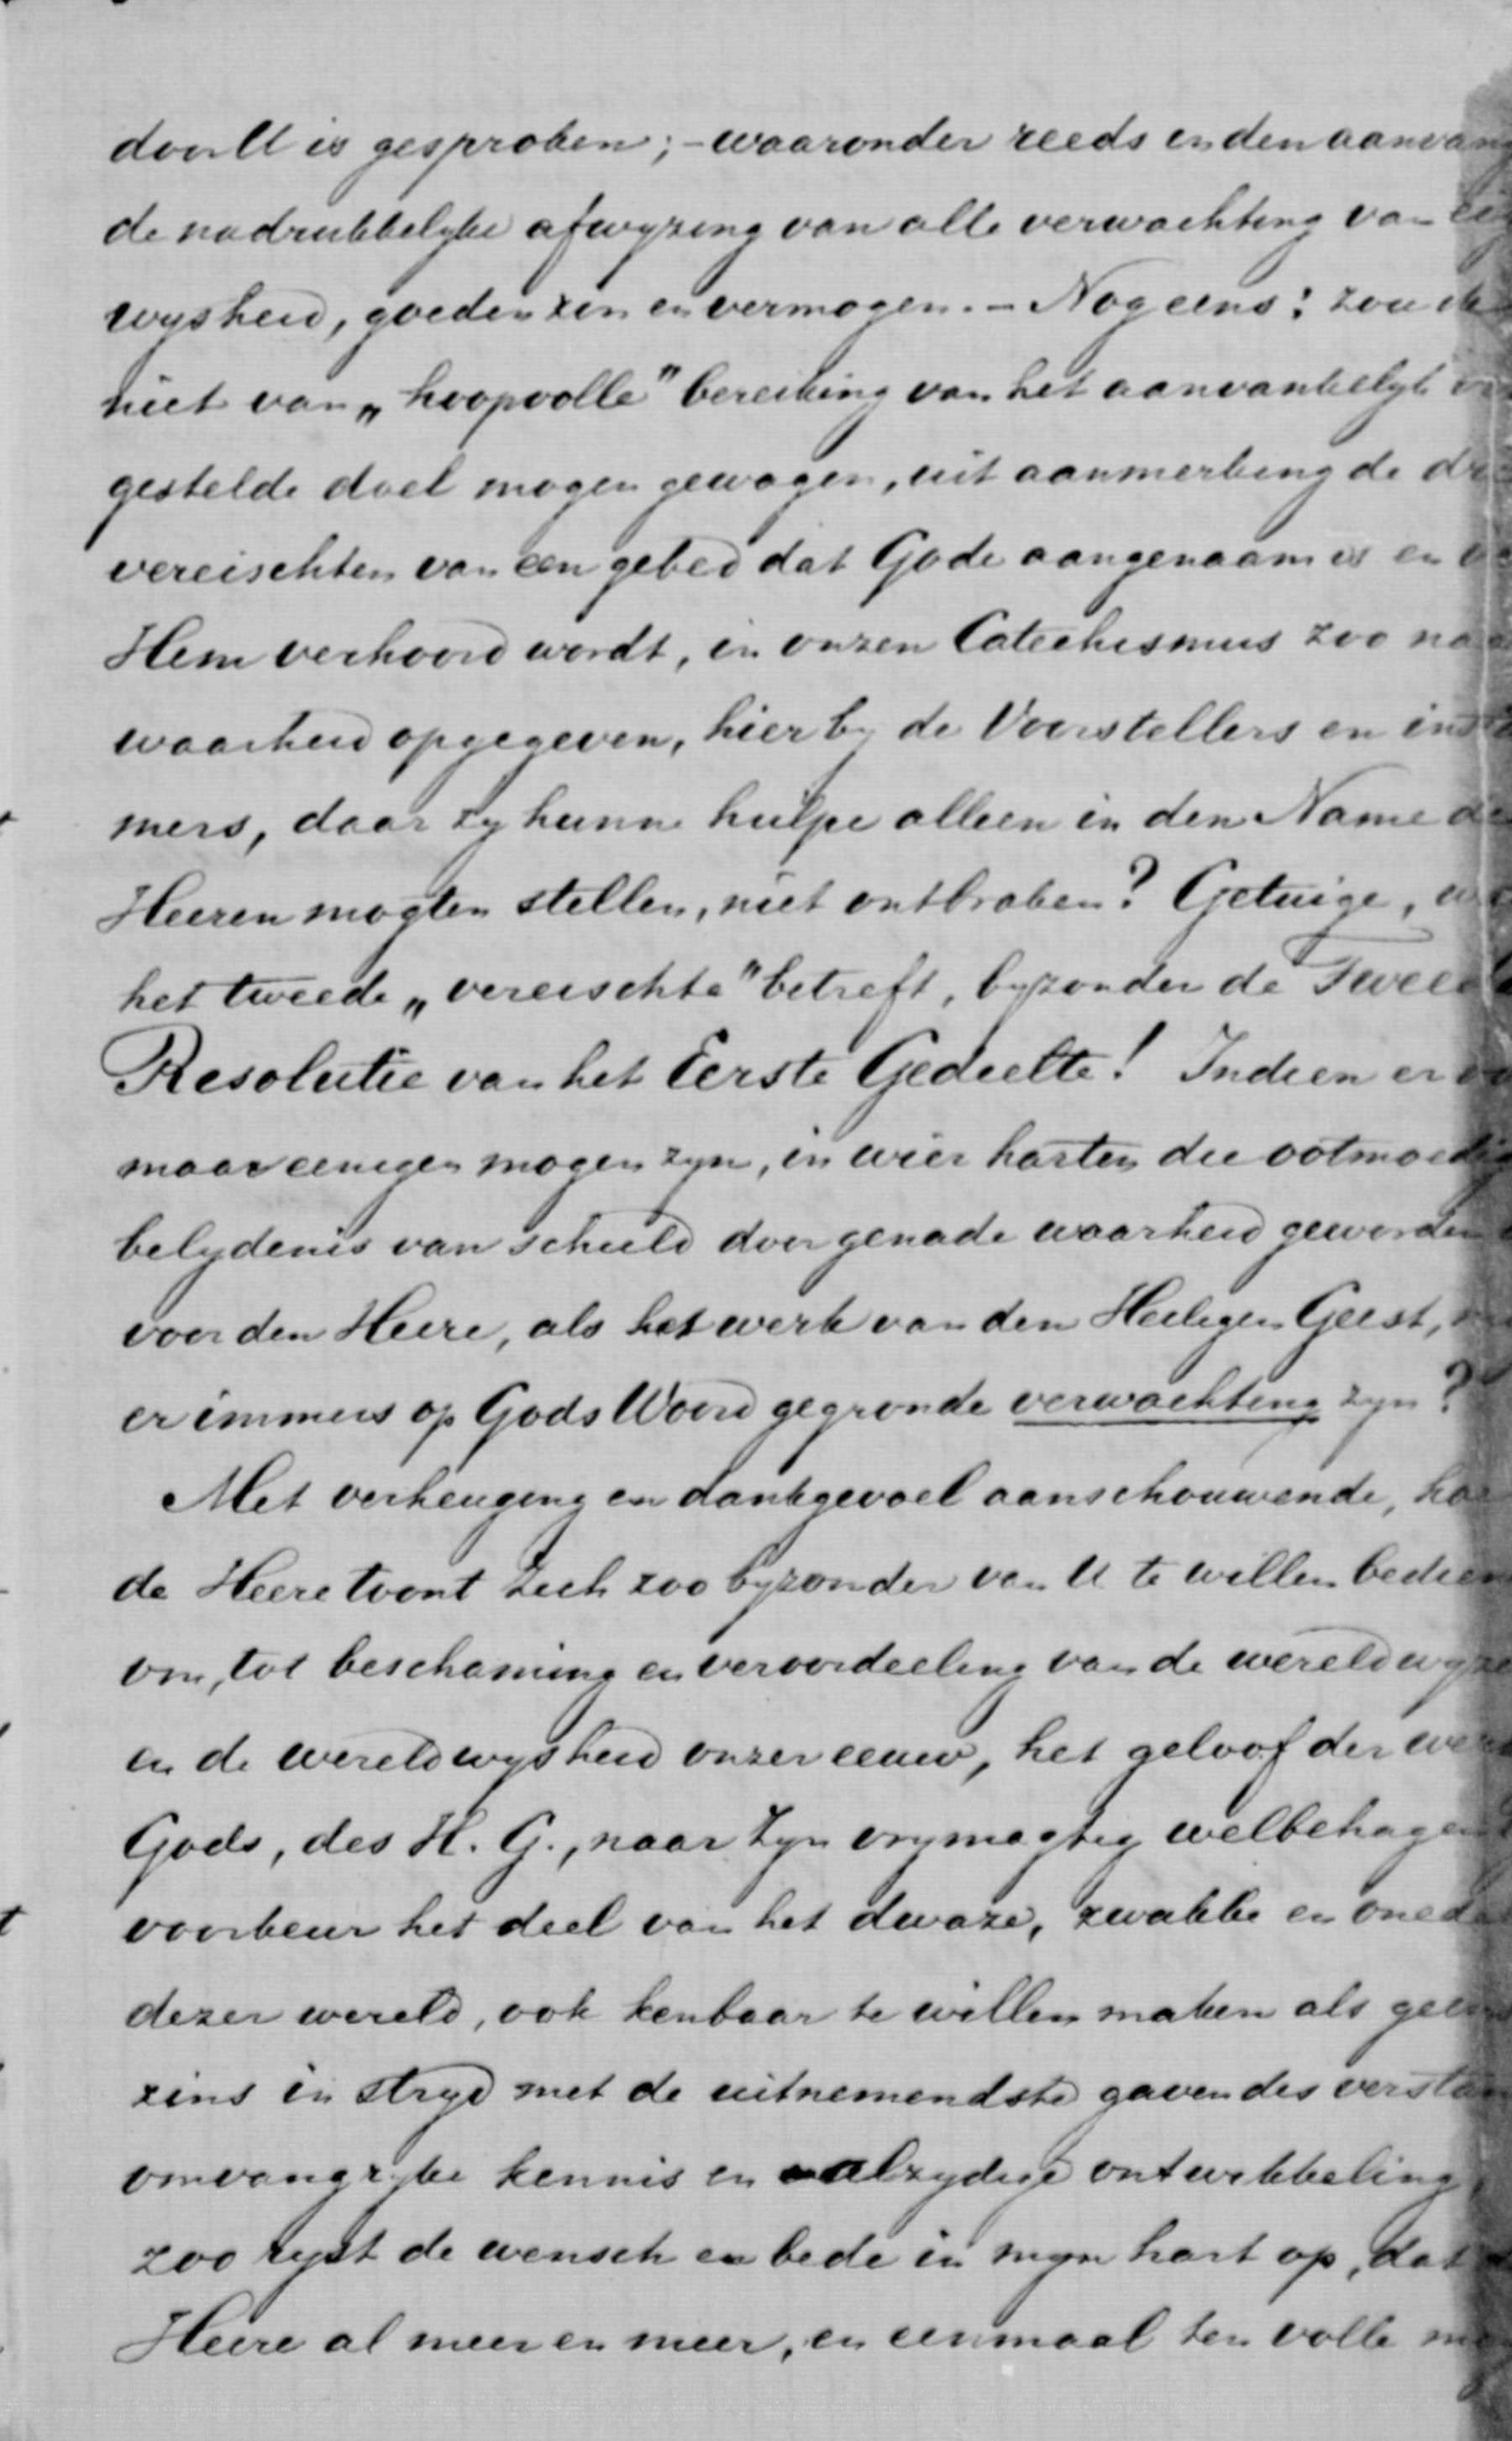 door U is gesproken; - waaronder reeds in den aanvang
de nadrukkelyke afwyzing van alle verwachting van
wysheid, goeden zin en vermogen. - Nog eens: zou ik
niet van „hoopvolle" bereiking van het aanvankelyk
gestelde doel mogen gewagen, uit aanmerking de
vereischten van een gebed dat Gode aangenaam is en
Hem verhoord wordt, in onzen Catechismus zoo
waarheid opgegeven, hier by de Voorstellers en
mers, daar zy hunne hulpe alleen in den Name
Heeren mogten stellen, niet ontbraken? Getuige,
het tweede „vereischte" betreft, byzonder de Tweede
Resolutie van het Eerste Gedeelte! Indien er
maar eenigen mogen zyn, in wier harten die ootmoedig
belydenis van schuld door genade waarheid geworden
voor den Heere, als het werk van den Heiligen Geest,
er immers op Gods Woord gegronde verwachting zyn?
Met verheuging en dankgevoel aanschouwende, hoe
de Heere toont zich zoo byzonder van U te willen bedien
om, tot beschaming en veroordeeling van de wereldwyze
en de wereldwysheid onzer eeuw, het geloof der
Gods, des H. G., naar Zyn vrymagtig welbehagen
voorkeur het deel van het dwaze, zwakke en oned
dezer wereld, ook kenbaar te willen maken als geen
zins in stryd met de uitnemendste gaven des verstan
omvangryke kennis en alzydige ontwikkeling,
zoo ryst de wensch en bede in myn hart op, dat
Heere al meer en meer, en eenmaal ten volle